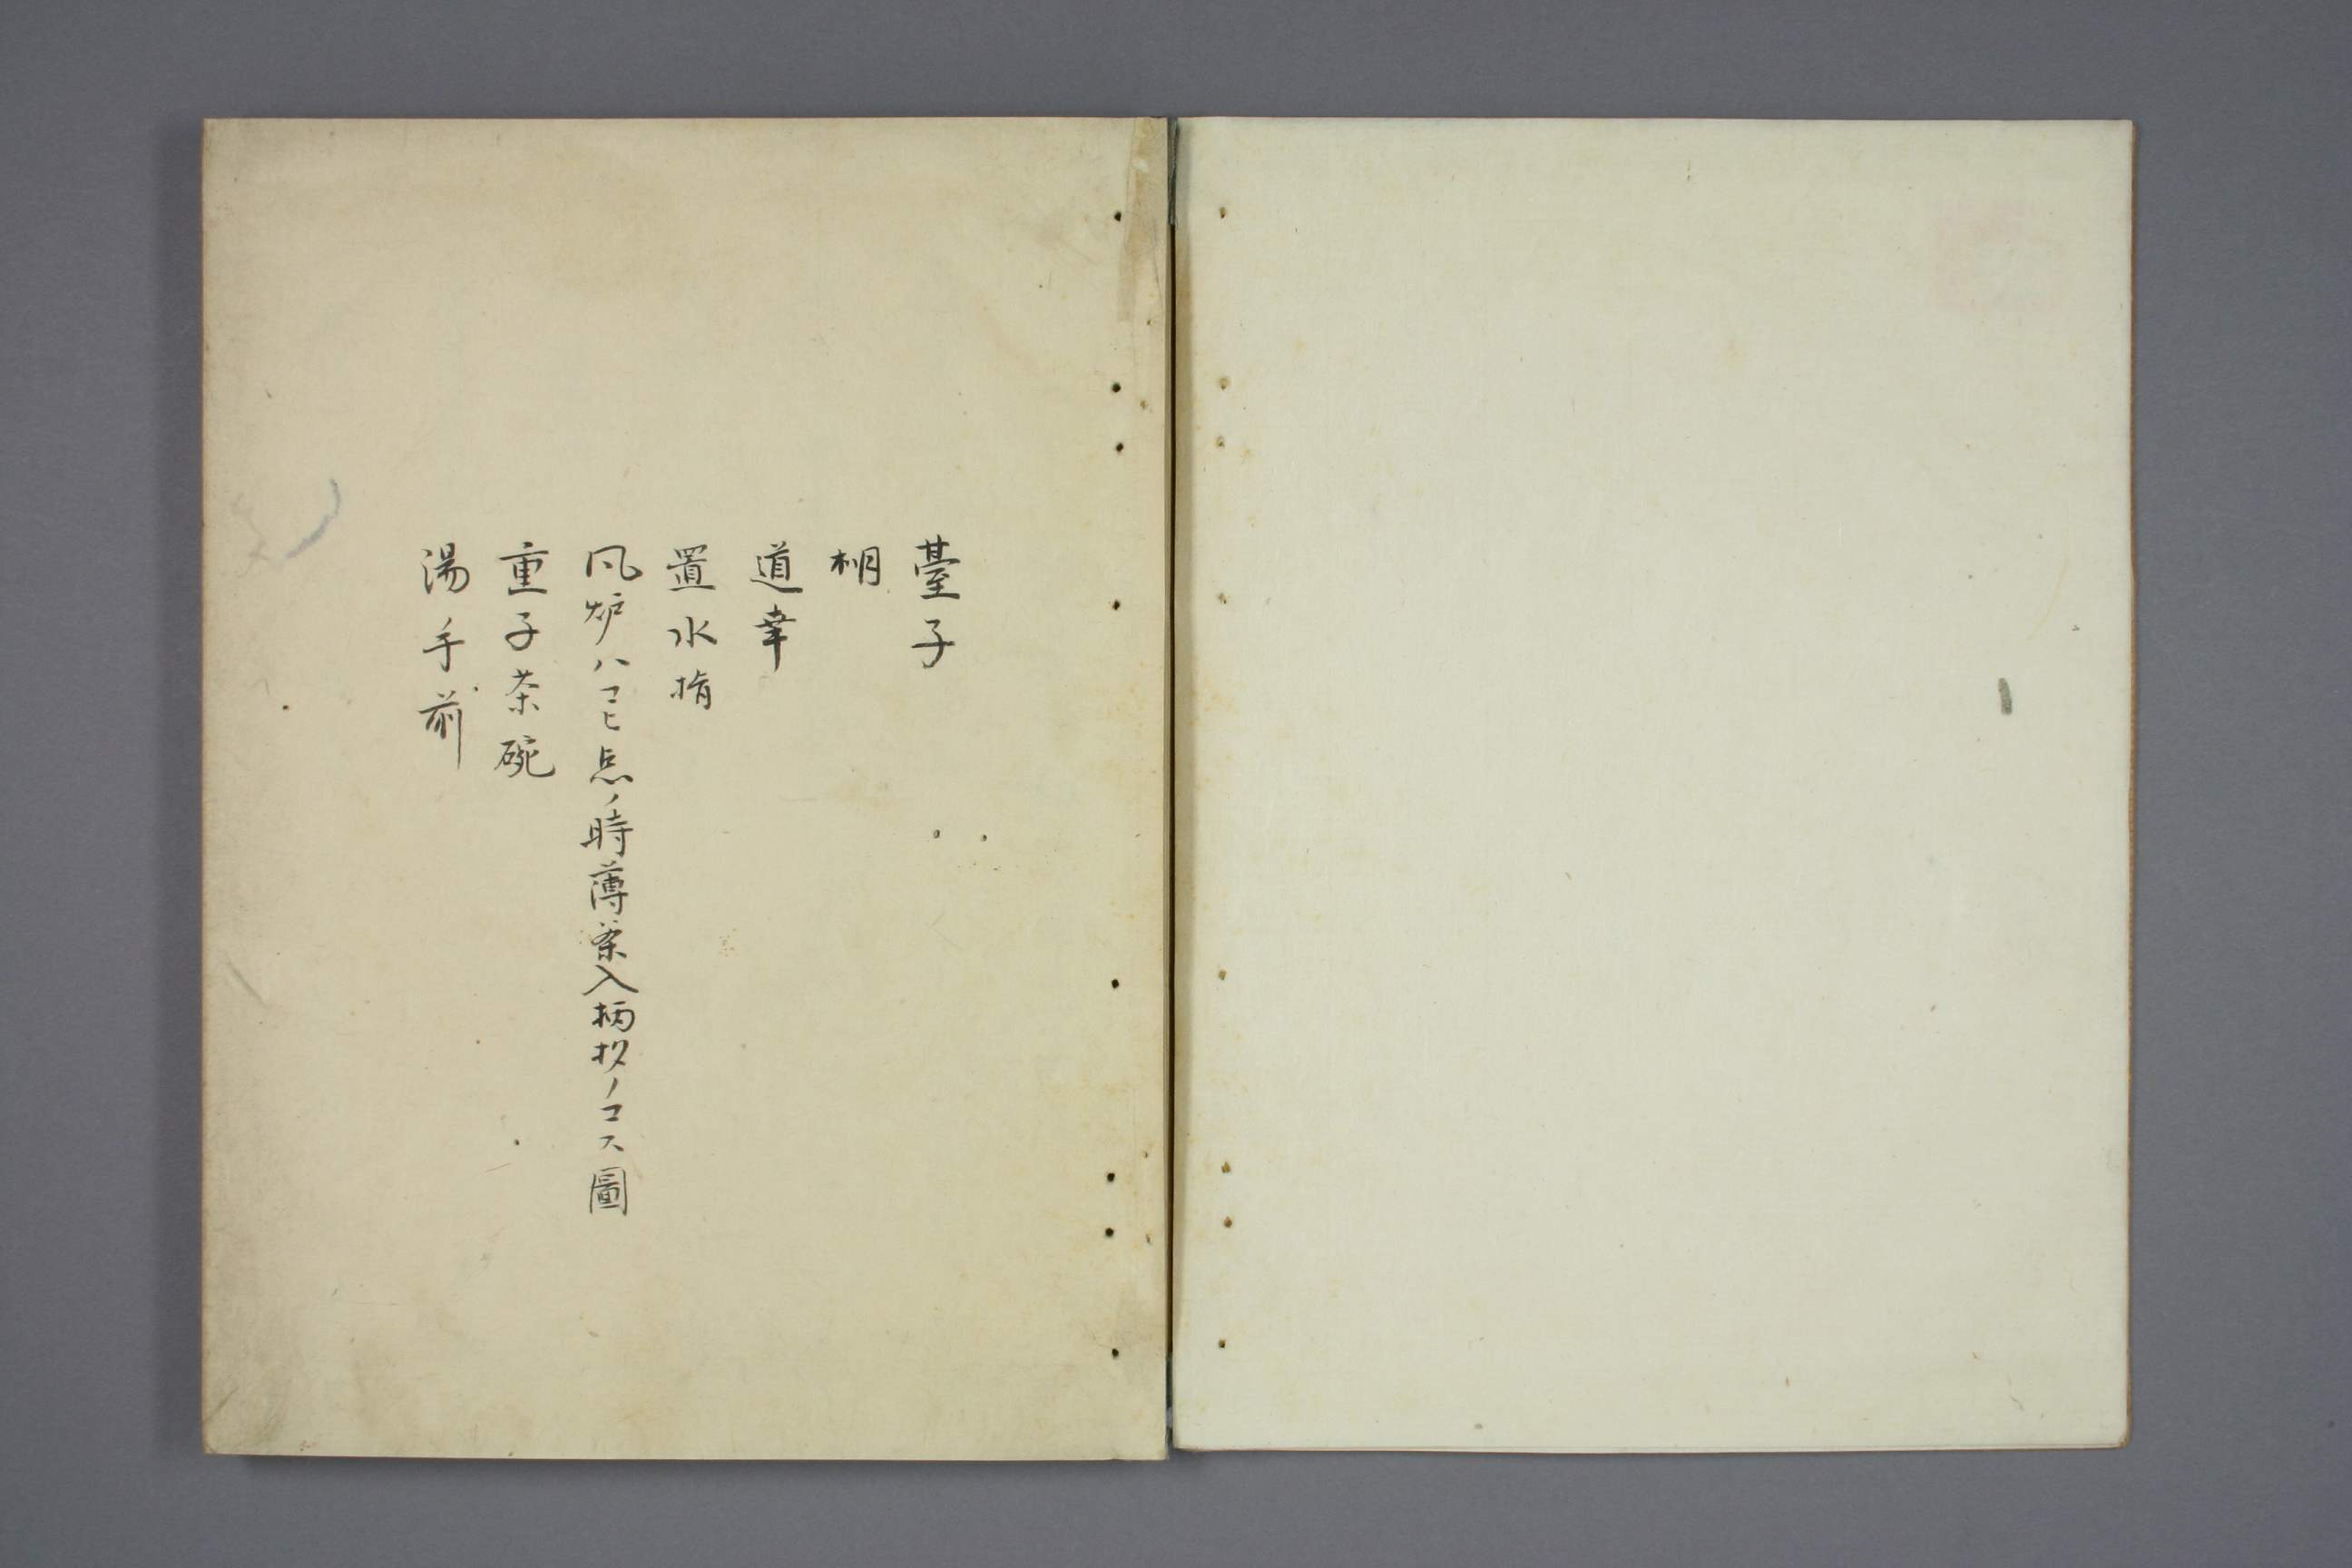 臺子
棚
道幸
置水指
風炉ハコヒ点ノ時薄茶入柄杓ノコス圖
重子茶碗
湯手前